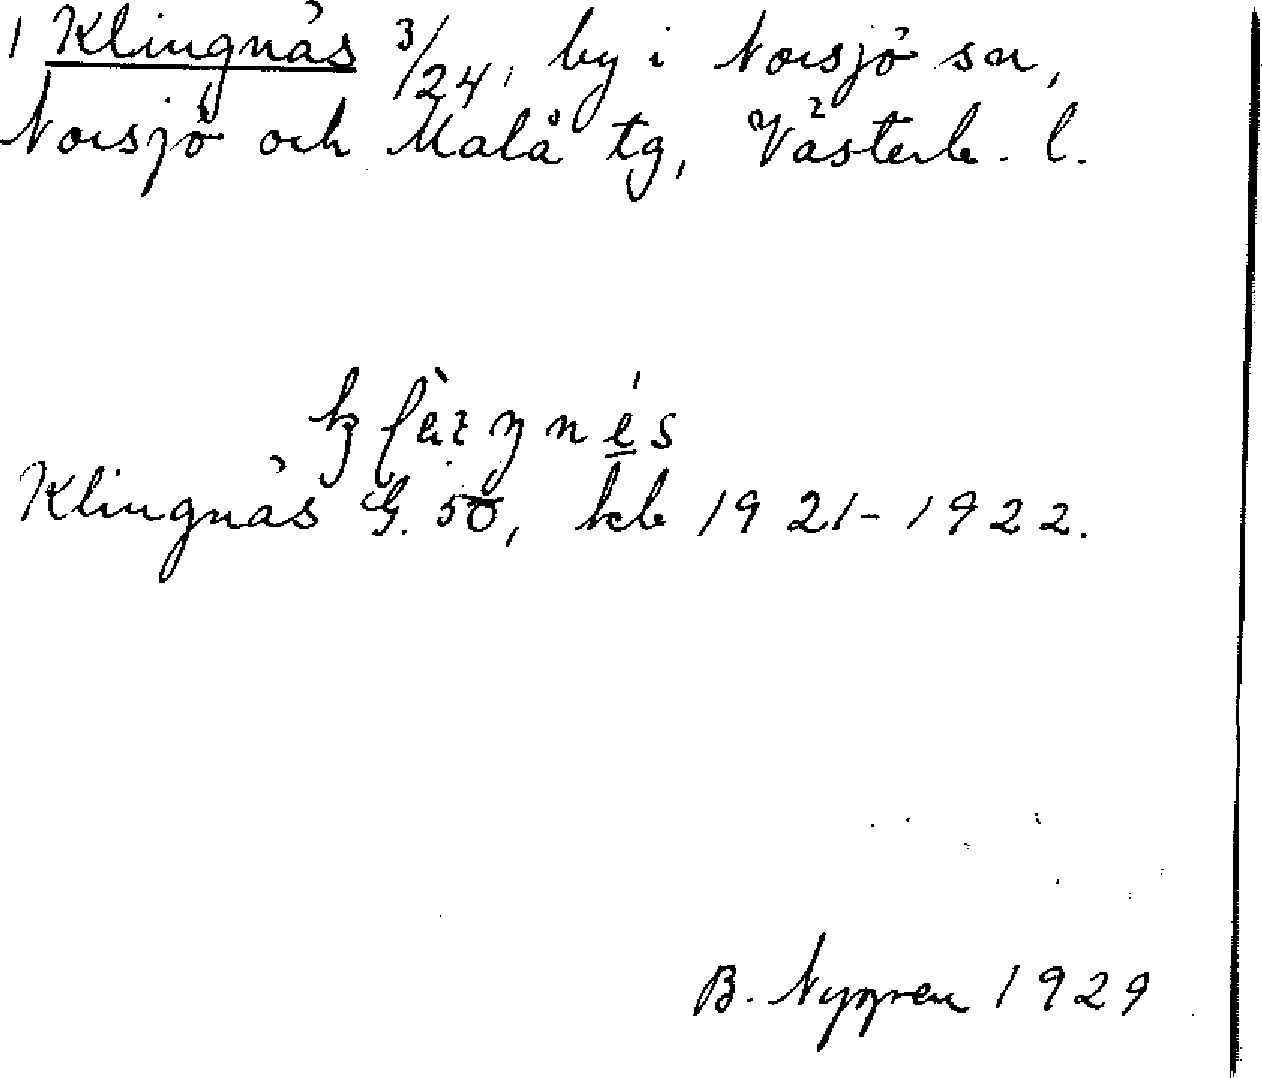 1 Klingnäs 3/24, by i Norsjö sn,
Norsjö och Malå tg, Västerb. l.
Klingnäs G. 50, kb 1921-1922.
B. Nygren 1929